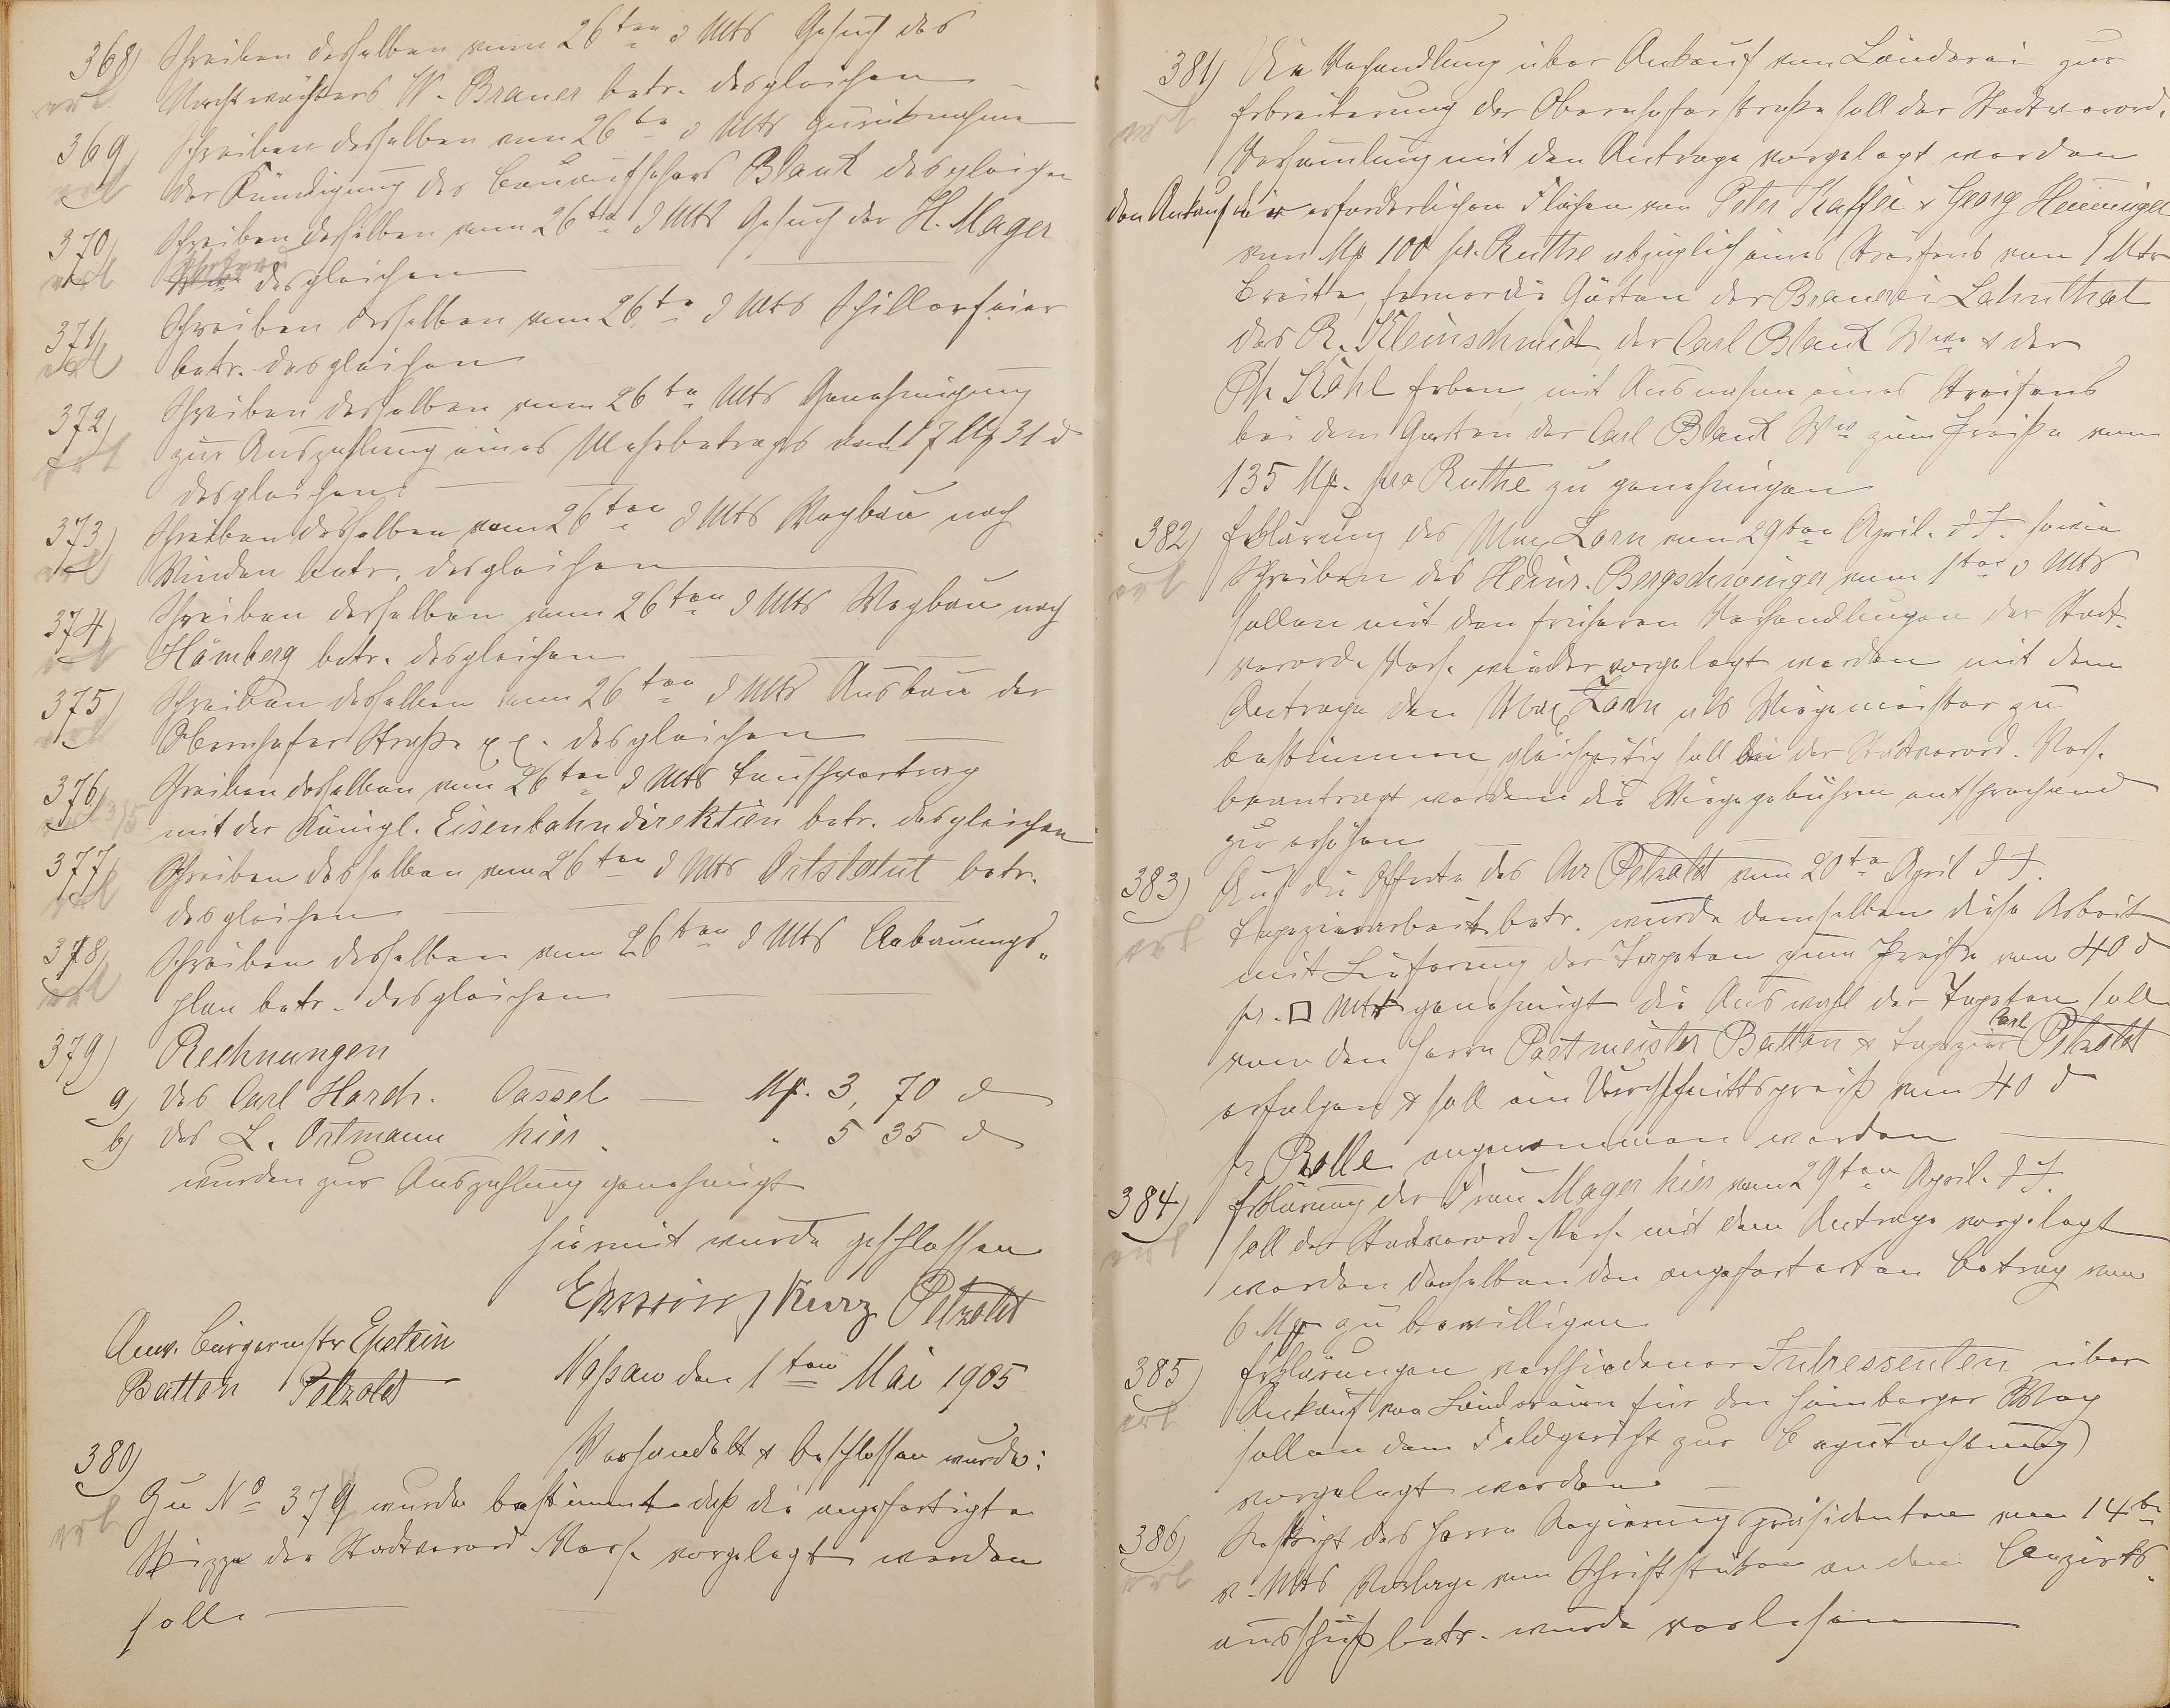 368) Schreiben desselben vom 26ten d Mts Gesuch des
erl Nachtwächters W. Brauer betr. desgleichen
369) Schreiben desselben vom 26ten d Mts Zurücknahme
erl der Kündigung des Bauaufsehers Blank desgleichen
370) Schreiben desselben vom 26ten d Mts Gesuch der H. Mager
erl Ehefrau desgleichen
371) Schreiben desselben vom 26ten d Mts Schillerfeier
erl betr. desgleichen
372) Schreiben desselben vom 26ten Mts Genehmigung
erl zur Auszahlung eines Mehrbetrages von 17 M 31 d
desgleichen
373) Schreiben desselben vom 26ten d Mts Wegbau nach
erl Winden betr. desgleichen
374) Schreiben desselben vom 26ten d Mts Wegbau nach
erl Hömberg betr. desgleichen
375) Schreiben desselben vom 26ten d Mts Ausbau der
erl Obernhofer Straße xx. desgleichen
376) Schreiben desselben vom 26ten d Mts Tauschvertrag
erl 3/5 mit der Königl. Eisenbahndirektion betr. desgleichen
377) Schreiben desselben vom 26ten d Mts Ortsstatut betr.
erl desgleichen
378) Schreiben desselben vom 26ten d Mts Bebauungs„
erl plan betr. desgleichen
379) Rechnungen
a) des Carl Hardr. Cassel — M. 3, 70 d
b) des L. Ortmann hier. " 5 35 d
wurden zur Auszahlung genehmigt
hiermit wurde geschlossen
Epstein Kurz Petzoldt
Anw. Bürgermstr Epstein
Batton Petzoldt
Naßau den 1ten Mai 1905
Verhandelt & beschlossen wurde:
380)
erl Zu No 379 wurde bestimmt daß die angefertigte
Skizze der Stadtverord. Vers. vorgelegt werden
soll.
381) Die Verhandlung über Ankauf von Länderei zur
erl Erbreiterung der Obernhoferstraße soll der Stadtverord.
Versammlung mit dem Antrage vorgelegt werden
den Ankauf der erforderlichen Flächen von Peter Kaffei & Georg Hemminger
von M 100 pr. Ruthe abzüglich eines Streifens von 1 Mtr
Breite, ferner die Gärten der Brauerei Lahnthal
des R. Kleinschmidt, der Carl Blank Wwe & der
Ph Köhl Erben, mit Ausnahme eines Streifens
bei dem Garten der Carl Blank Wwe zum Preiße von
135 M. pro Ruthe zu genehmigen
382) Erklärung des Max Lorn vom 29ten April. d J. sowie
erl Schreiben des Heinr. Bergschwinger vom 1ten d Mts
sollen mit den früheren Verhandlungen der Stadt-
verord. Vers. wieder vorgelegt werden mit dem
Antrage den Max Lorn als Wiegemeister zu
bestimmen gleichzeitig soll bei der Stadtverord. Vers.
beantragt werden die Wiegegebühren entsprechend
zu erhöhen
383) Auf die Offerte des Petzoldt vom 20ten April d J.
erl Tapezierarbeit betr. wurde demselben diese Arbeit
mit Lieferung der Tapeten zum Preiße von 40 d
pr. □ Mtr genehmigt die Auswahl der Tapeten soll
von den Herrn Postmeister Batton & Tapezier Carl Petzoldt
erfolgen & soll ein Durchschnittspreiß von 40 d
pr Rolle angenommen werden
384) Erklärung der Frau Mager hier vom 29ten April. d J.
erl soll der Stadtverord. Vers. mit dem Antrage vorgelegt
werden derselben den angeforderten Betrag von
6 M zu bewilligen
385) Erklärungen verschiedener Intressenten über
erl Ankauf von Ländereien für den Hömberger Weg
sollen dem Feldgericht zur Begutachtung
vorgelegt werden
386) Reskript des Herrn Regierungspräsidenten vom 14ten
erl v. Mts Vorlage von Schriftstücken an den Bezirks-
ausschuß betr. wurde verlesen